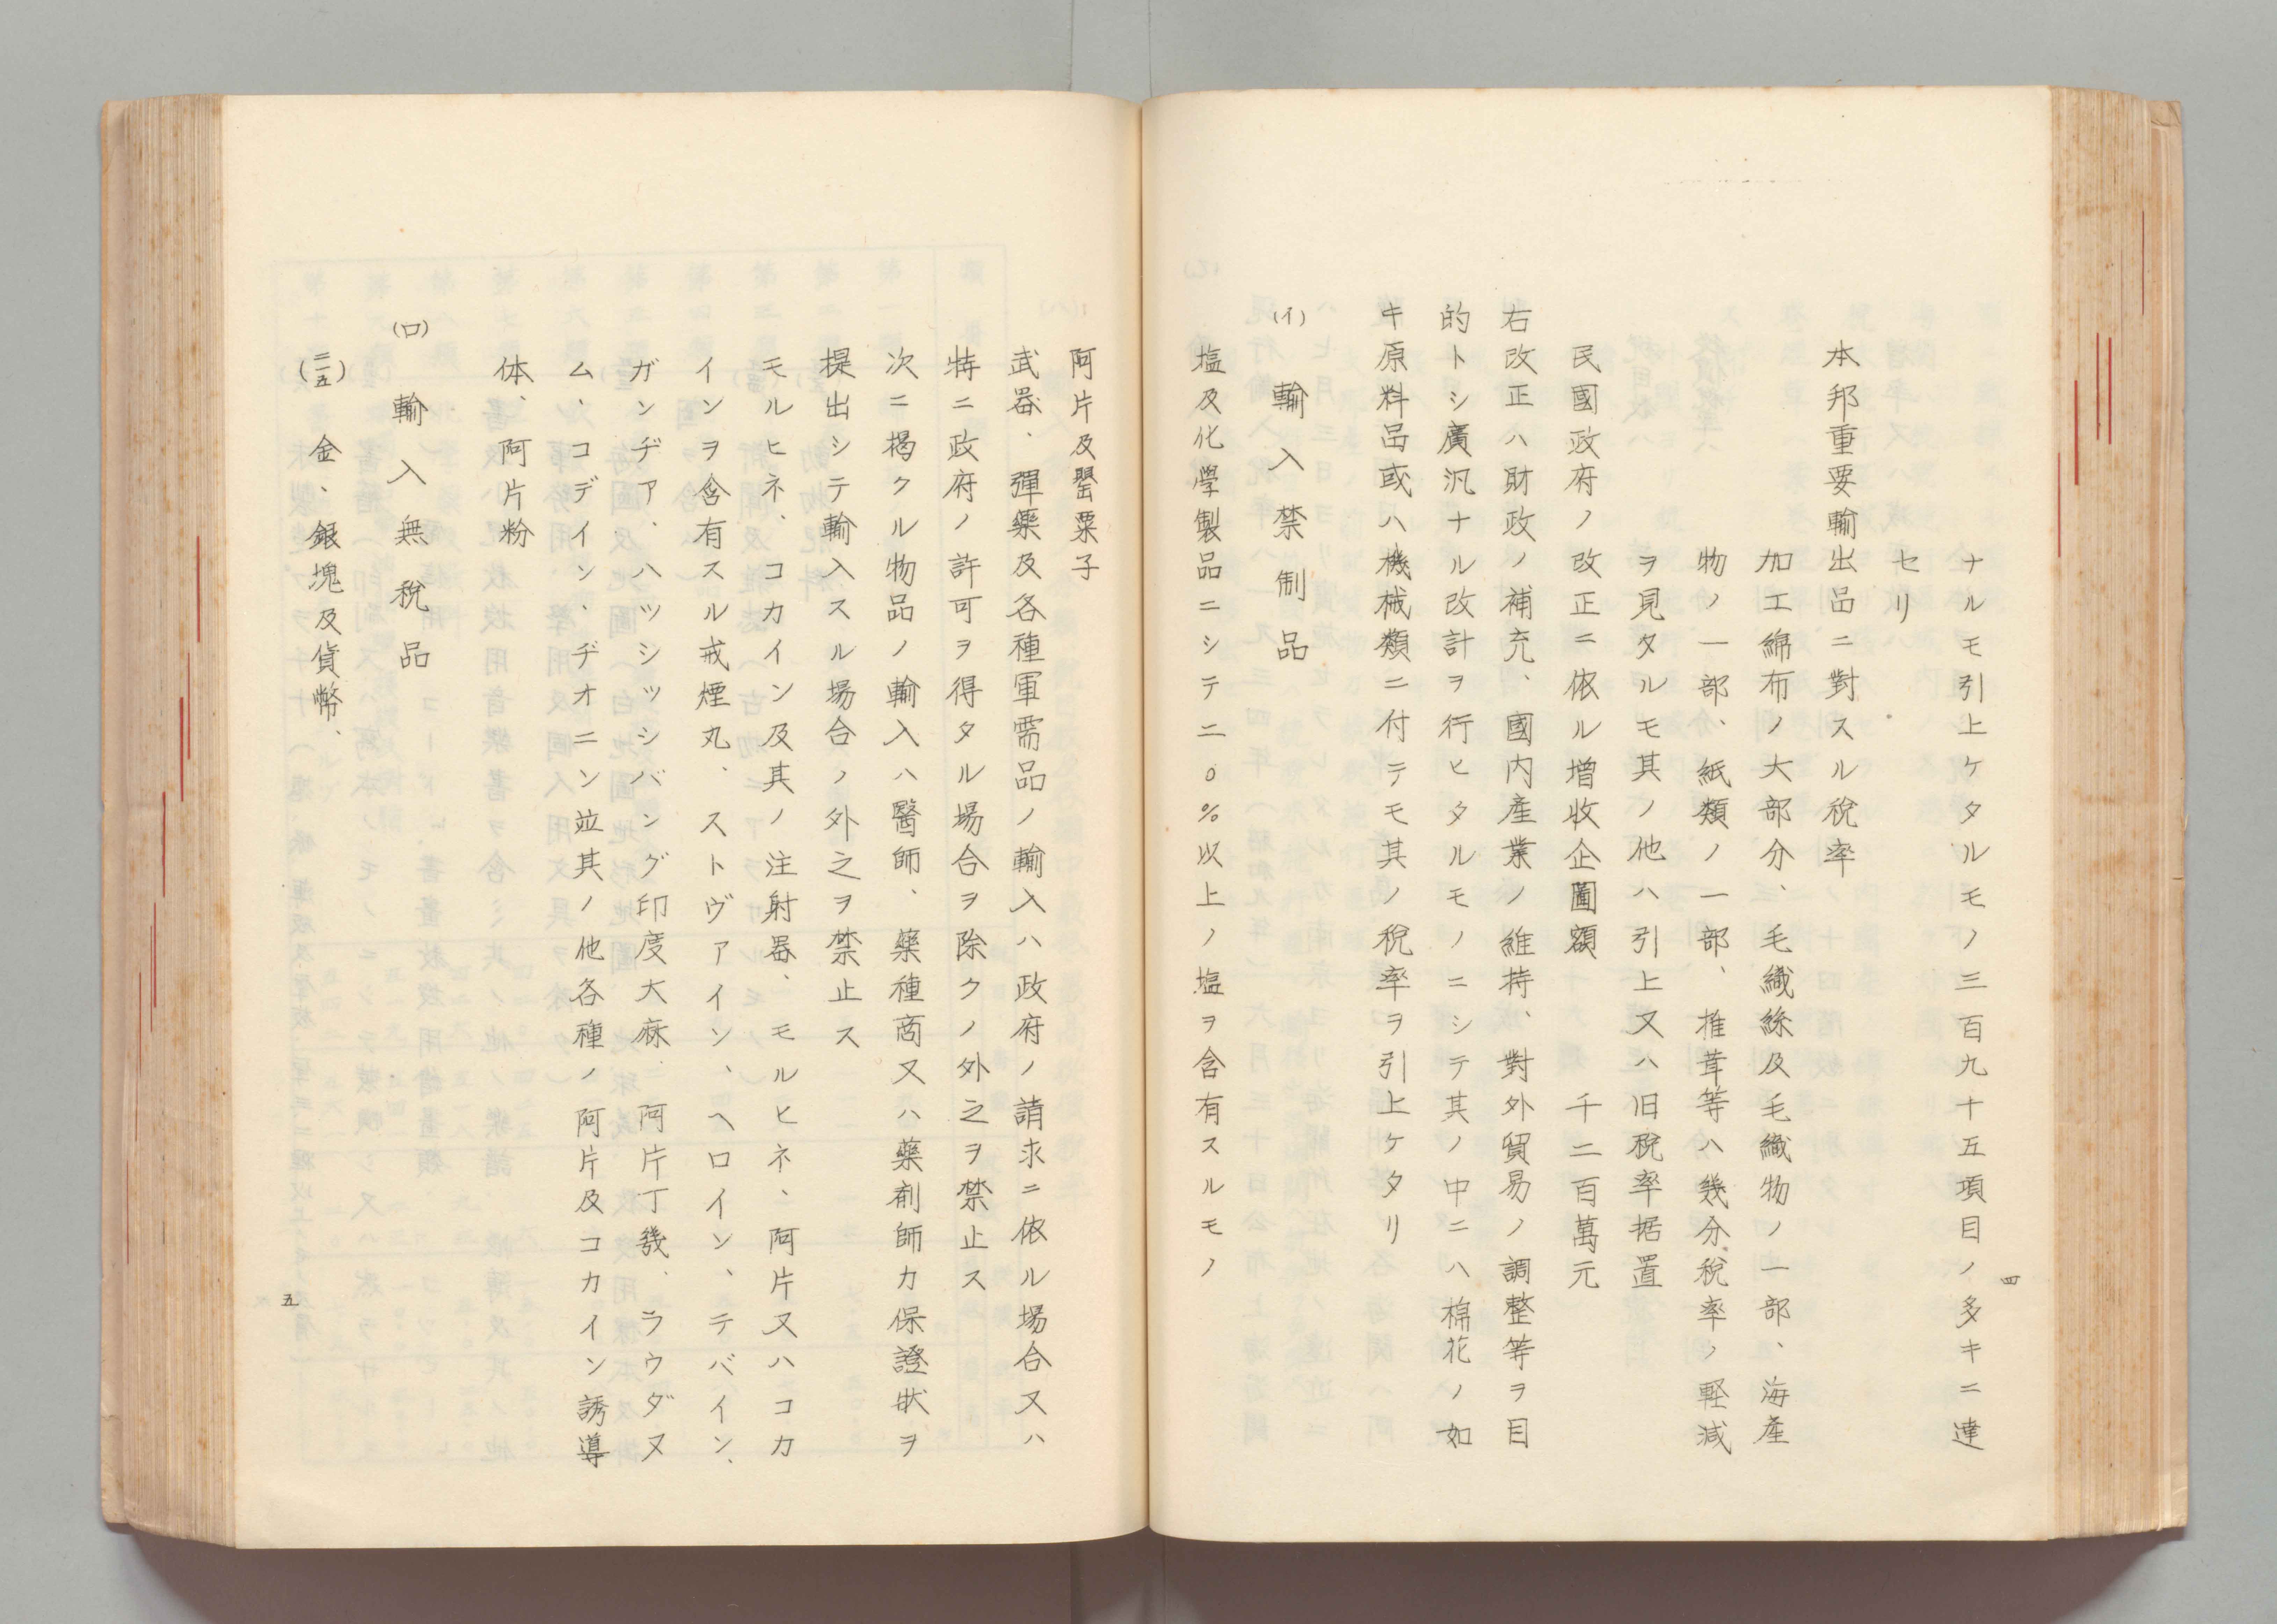 ナルモ引上ケタルモノ三百九十五項目ノ多キニ達
セリ
本邦重要輸出品ニ對スル稅率
加工綿布ノ大部分、毛織絲及毛織物ノ一部、海產
物ノ一部、紙類ノ一部、推茸等ハ幾分稅率ノ軽減
ヲ見タルモ其ノ他ハ引上又ハ旧稅率据置
民國政府ノ改正ニ依ル增收企圖額 千二百萬元
右改正ハ財政ノ補充、國内產業ノ維持、對外貿易ノ調整等ヲ目
的トシ廣汎ナル改計ヲ行ヒタルモノニシテ其ノ中ニハ棉花ノ如
キ原料品或ハ機械類ニ付テモ其ノ稅率ヲ引上ケタリ
(イ) 輸入禁制品
塩及化學製品ニシテ二〇%以上ノ塩ヲ含有スルモノ
四
阿片及罌粟子
武器、彈藥及各種軍需品ノ輸入ハ政府ノ請求ニ依ル場合又ハ
特ニ政府ノ許可ヲ得タル場合ヲ除クノ外之ヲ禁止ス
次ニ揭クル物品ノ輸入ハ醫師、藥種商又ハ藥劑師カ保證狀ヲ
提出シテ輸入スル場合ノ外之ヲ禁止ス
モルヒネ、コカイン及其ノ注射器、モルヒネ、阿片又ハコカ
インヲ含有スル戒煙丸、ストヴアイン、ヘロイン、テバイン、
ガンヂア、ハツシツシバング印度大麻、阿片丁幾、ラウダヌ
ム、コデイン、ヂオニン竝其ノ他各種ノ阿片及コカイン誘導
体、阿片粉
(ロ) 輸入無稅品
(二三五) 金、銀塊及貨幣、
五